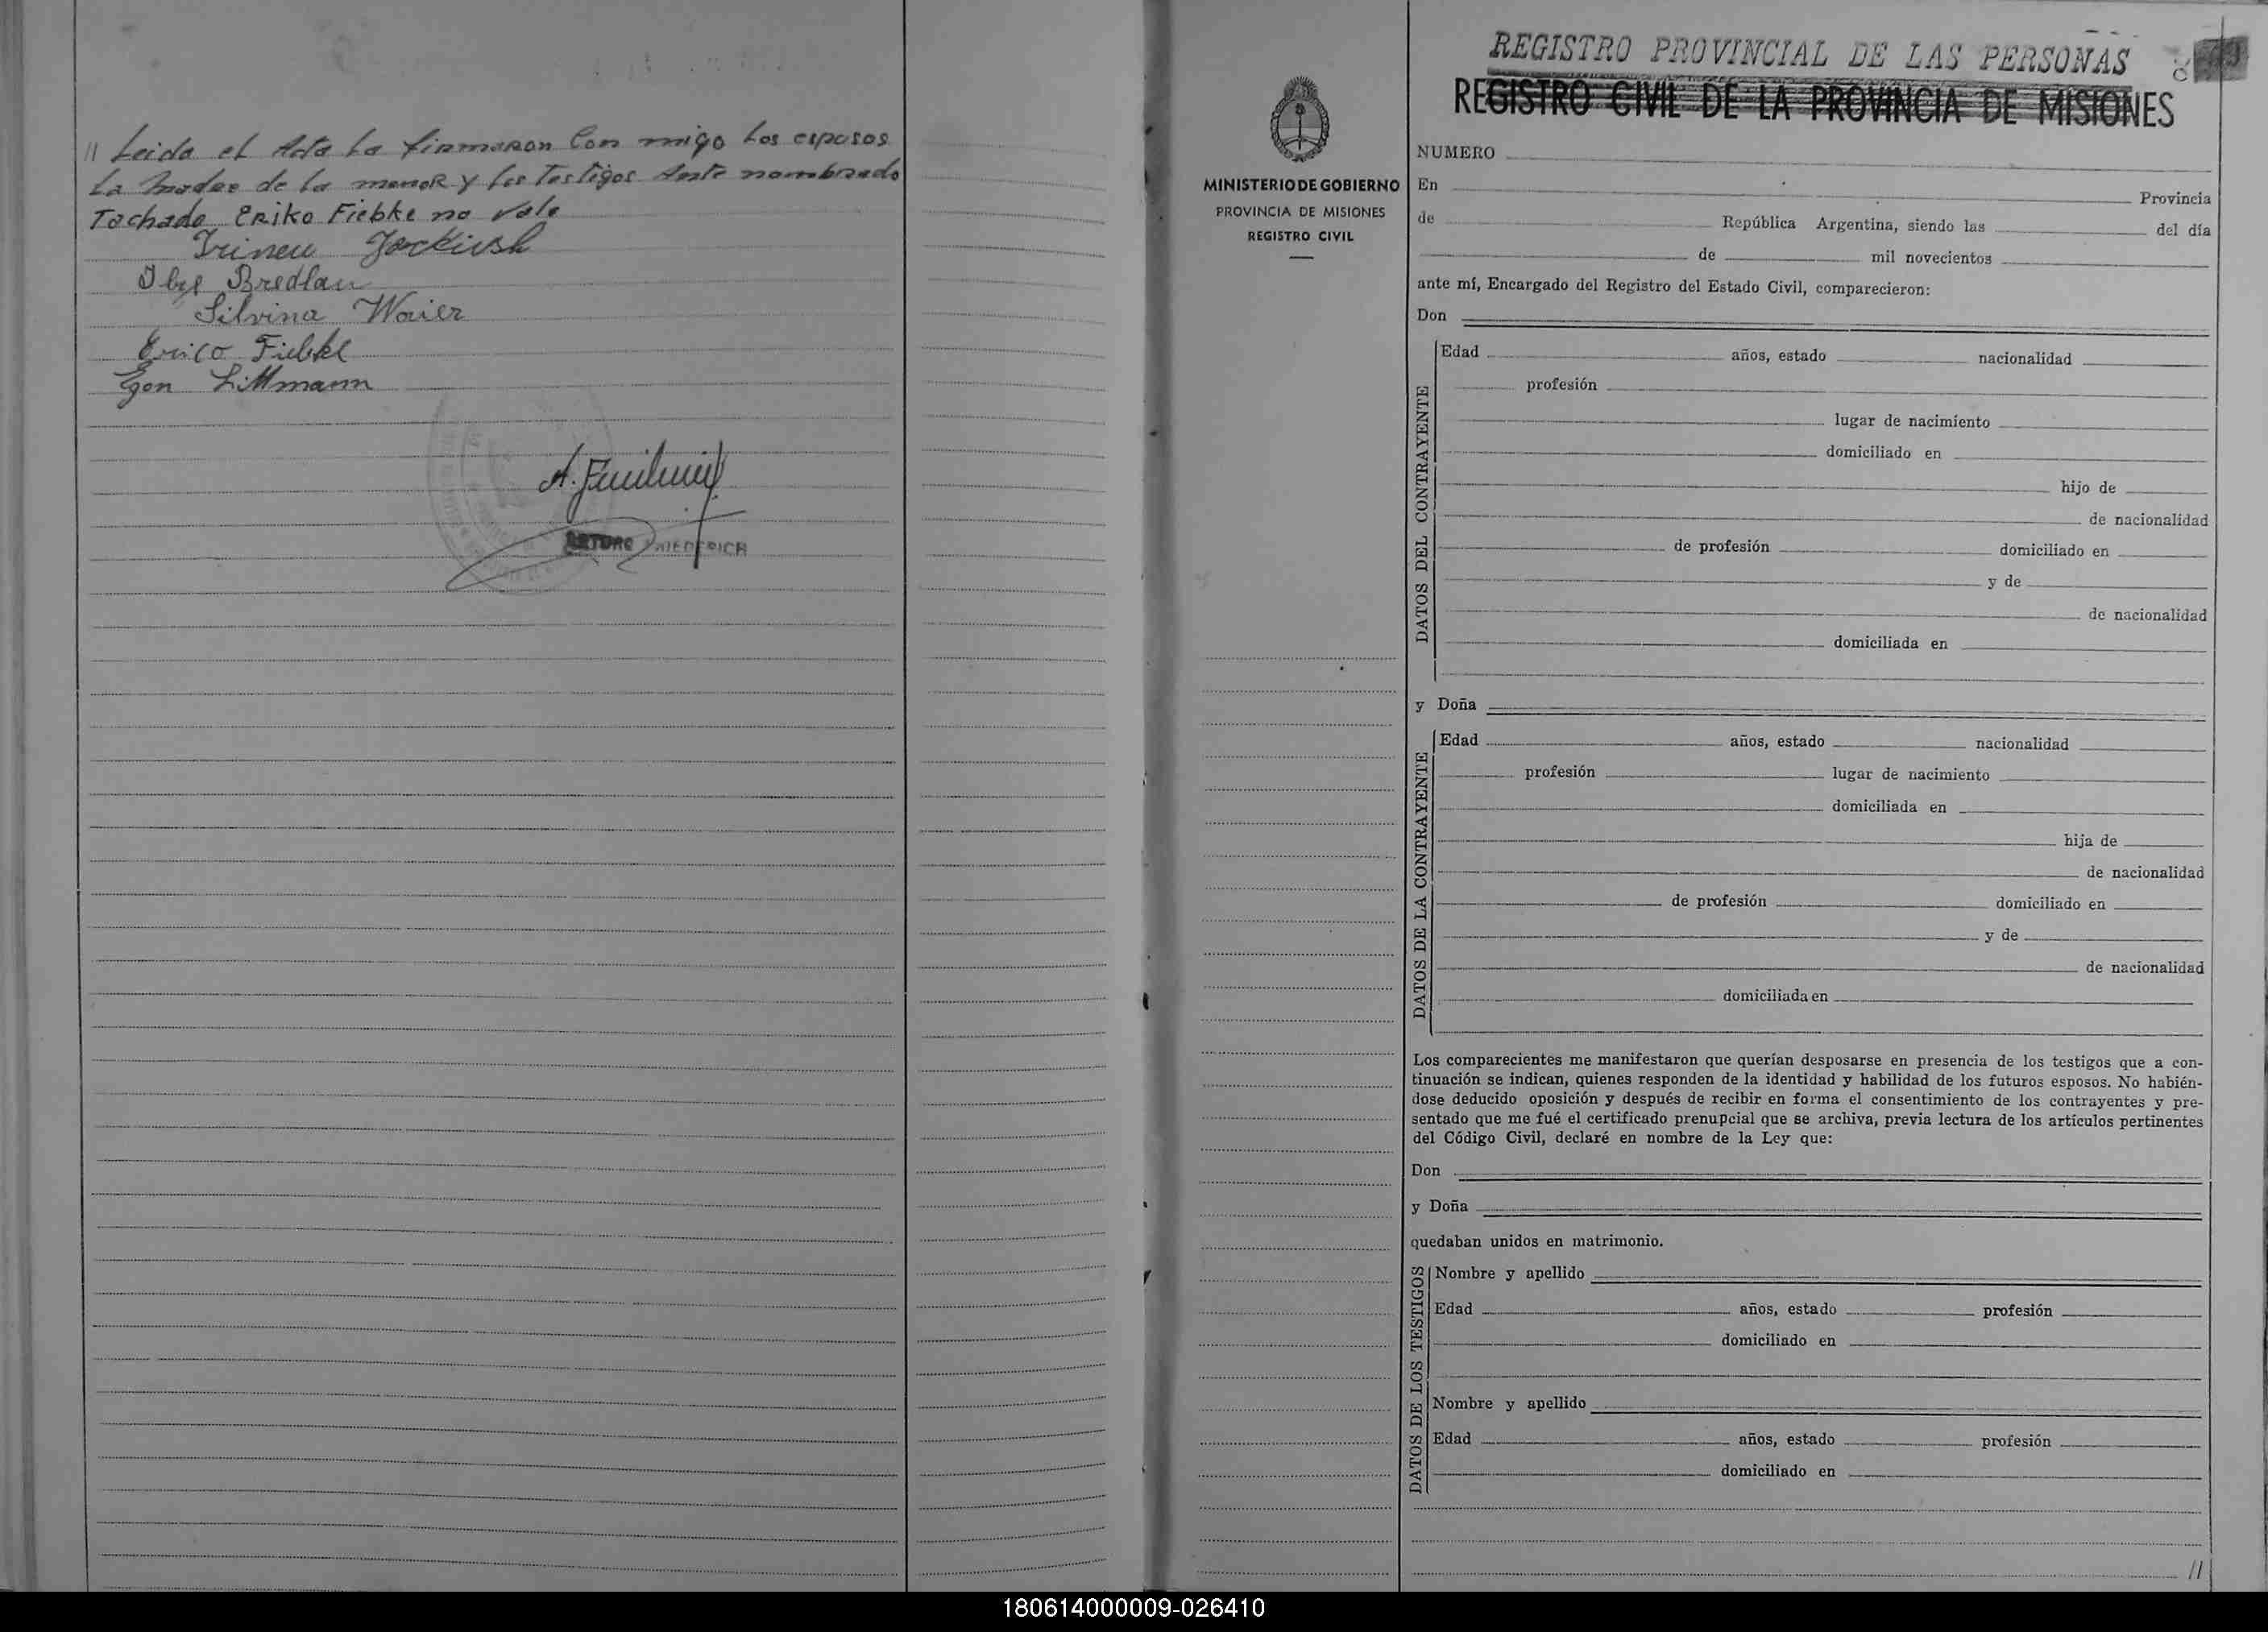 // Leida el Acta La firmaron Con migo Los esposos
La madre de la menor y los Testigos Ante nombrado
Tachado Eriko Fiebke no vale
Irineu Jackiush
Bredlau
Silvina Waier
Erico Fiebke
Egon Littmann
ARTURO FRIEDERICH
REGISTRO PROVINCIAL DE LAS PERSONAS
REGISTRO CIVIL DE LA PROVINCIA DE MISIONES
MINISTERIO DE GOBIERNO
PROVINCIA DE MISIONES
REGISTRO CIVIL
NUMERO
En Provincia
de República Argentina, siendo las del día
de mil novecientos
ante mí, Encargado del Registro del Estado Civil, comparecieron:
Don
DATOS DEL CONTRAYENTE
Edad años, estado nacionalidad
profesión
lugar de nacimiento
domiciliado en
hijo de
de nacionalidad
de profesión domiciliado en
y de
de nacionalidad
domiciliada en
y Doña
DATOS DE LA CONTRAYENTE
Edad años, estado nacionalidad
profesión lugar de nacimiento
domiciliada en
hija de
de nacionalidad
de profesión domiciliado en
y de
de nacionalidad
domiciliada en
Los comparecientes me manifestaron que querían desposarse en presencia de los testigos que a con-
tinuación se indican, quienes responden de la identidad y habilidad de los futuros esposos. No habién-
dose deducido oposición y después de recibir en forma el consentimiento de los contrayentes y pre-
sentado que me fué el certificado prenupcial que se archiva, previa lectura de los artículos pertinentes
del Código Civil, declaré en nombre de la Ley que:
Don
y Doña
quedaban unidos en matrimonio.
DATOS DE LOS TESTIGOS
Nombre y apellido
Edad años, estado profesión
domiciliado en
Nombre y apellido
Edad años, estado profesión
domiciliado en
//
180614000009-026410